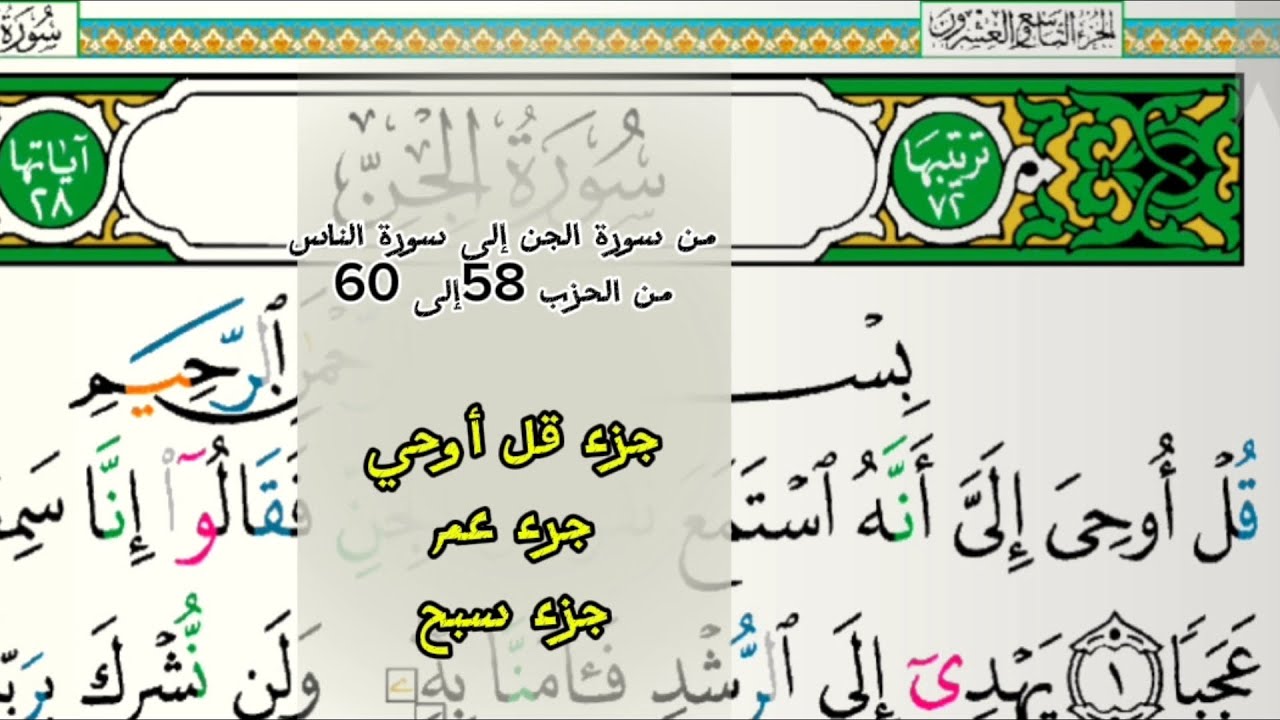 الجزء التاسع والعشرون سُورَة
ترتيبها ٧٢ سُورَةُ الْجِنِّ آياتها ٢٨
من سورة الجن إلى سورة الناس
من الحزب 58إلى 60
بِسْمِ ٱلرَّحِيمِ
جزء قل أوحي
قُلْ أُوحِىَ إِلَىَّ أَنَّهُ ٱسْتَمَعَ فَقَالُوٓا۟ إِنَّا
جرء عمر
جزء سبح
عَجَبًا ١ يَهْدِىٓ إِلَى ٱلرُّشْدِ فَـَٔامَنَّا بِهِۦ وَلَن نُّشْرِكَ